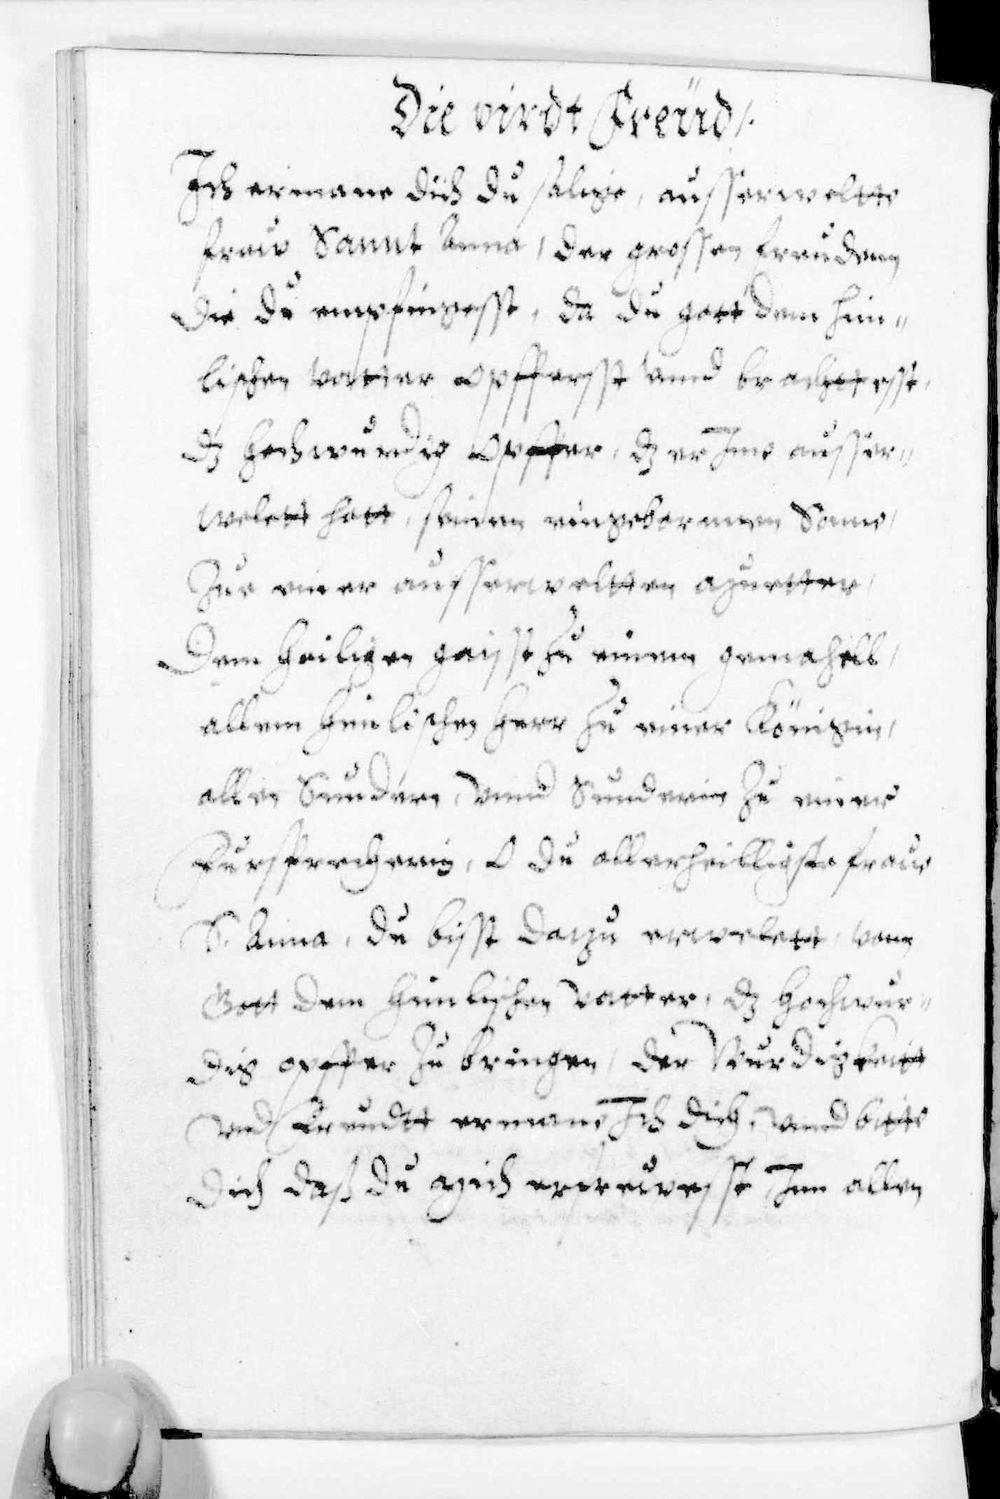 Die virdt Freüd /.
Ich ermane dich du sälige, ausserweltte
fraw Sannt Anna / der grossen freuden
die du empfingesst, da du gott dem him=
lischen vatter opffersst vnnd brachttesst,
dz hochwurdig opffer, dz er Ime ausser=
welett hatt, seinen eingebornnen Sone,
Zue einer ausserweltten muetter,
dem heiligen gaisst zu einem gemahell,
allem himlischen heer zu einer Königin,
allen Sundern, vnnd Sunderin zu einer
Fursprecherin, O du allerheilligste fraw
S. Anna, du bisst darzu erwelett, vonn
Gott dem himlischen vatter, dz hochwur=
dig opffer zu bringen, der Wurdigkeitt
vnd Freudtt ermane Ich dich, vnnd bitte
dich daß du mich erfreuwesst Inn allen